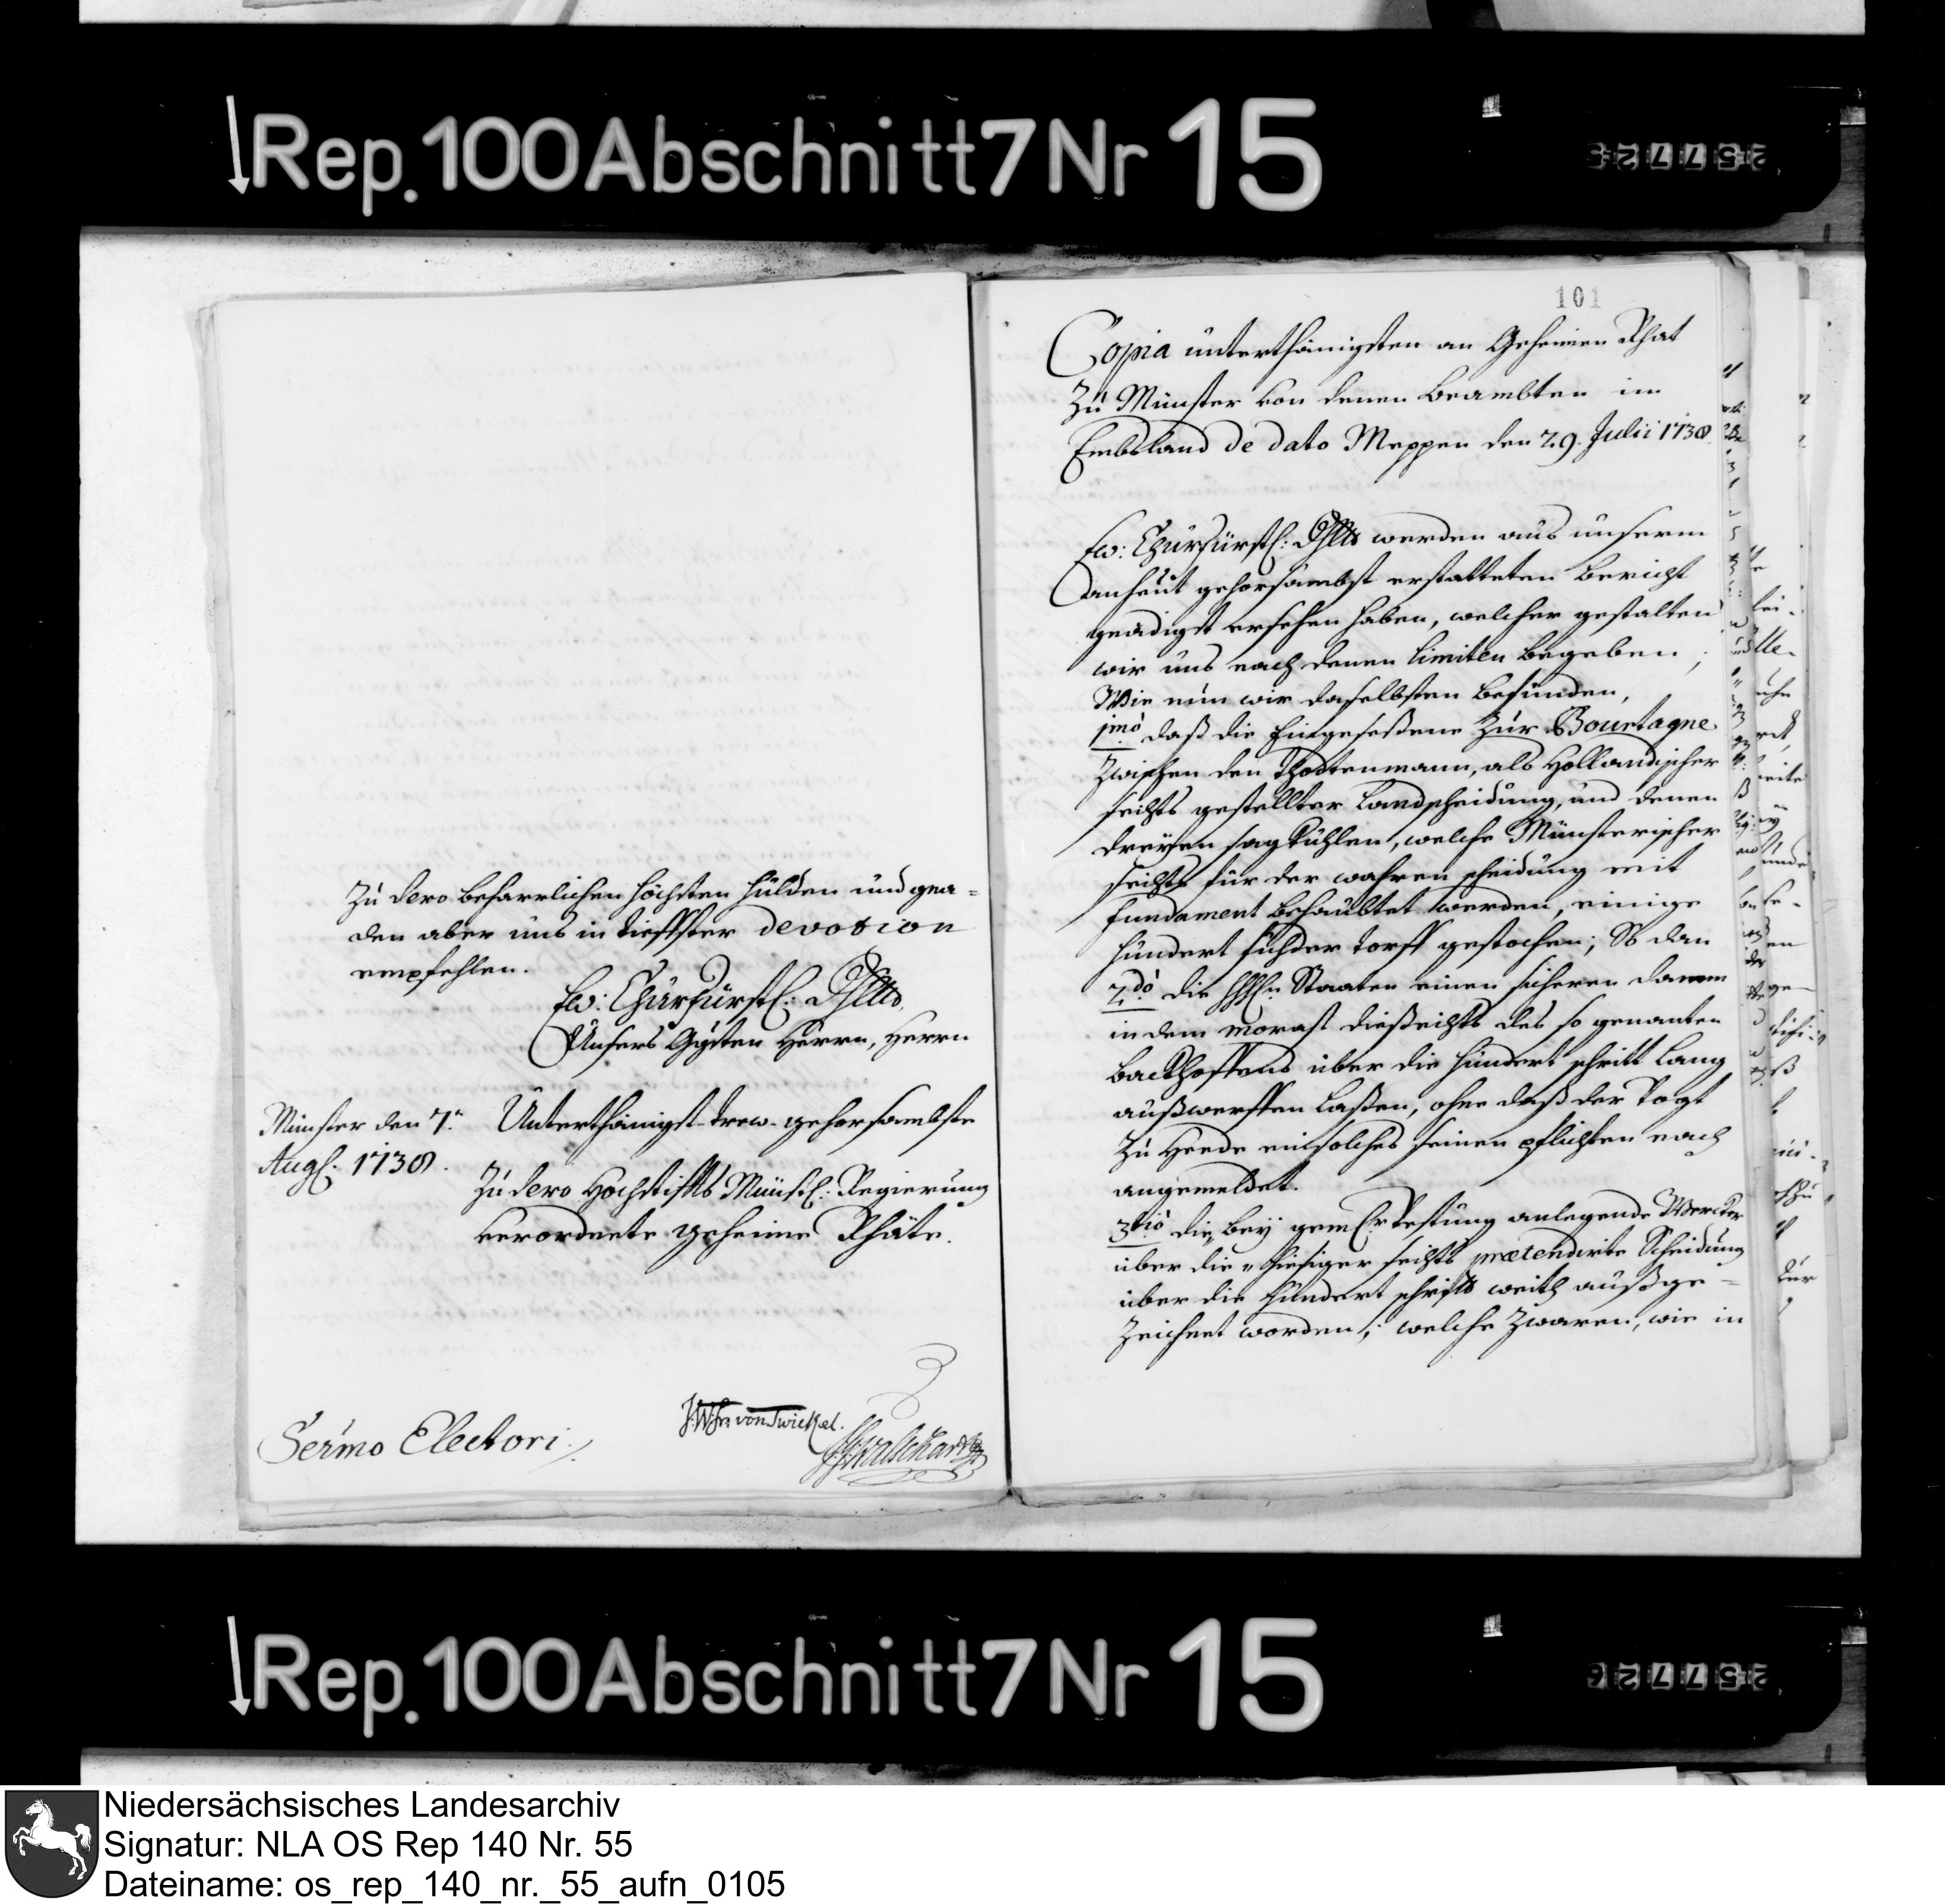 Rep. 100 Abschnitt 7 Nr 15
25772
Zu dero beharrlichen höchsten Hülden und gna=
den aber uns in tieffster devotion
empfehlen.
Ew: Churfürstl: Dhltt
Unsers Ggsten Herrn, Herrn
Münster den 7.
Aug. 1738.
Unterthänigst-trew-gehorsambste
Zu dero Hochstiffts Münstl: Regierung
verordnete geheime Rhäte.
Sermo Electori.
von Twickel.
101
Copia unterthänigsten an Geheimen Rhat
Zu Münster von denen Beambten im
Embsland de dato Meppen den 29. Julii 1738
Ew: Churfürstl: Dhltt werden aus unserm
anheut gehorsambst erstatteten Bericht
gnädigst ersehen haben, welcher gestalten
wir uns nach denen limiten begeben;
Wie nun wir daselbsten befunden,
1mo daß die Eingeseßene Zur Bourtagne
Zwischen den Thodtenmann, als Hollandischer
seihts gestellter Landscheidung, und denen
dreyen sagkuhlen, welche Münsterischer
seihts für der wahren scheidung mit
fundament behaubtet werden, einige
hundert fuhder torff gestochen; So dan
2do die Staaten einen sicheren damm
in dem morast dießeihts des so genanten
backhoffens über die hundert schritt lang
außwerffen laßen, ohne daß der Vogt
Zu Heede ein solches seinen pflichten nach
angemeldet.
3tio die bey gem. Er Vestung anlegende Wercker
über die hiesiger seihts prætendirte Scheidung
über die hundert schritt weith außge=
Zeichnet worden; welche Zwaren, wie in
Rep. 100 Abschnitt 7 Nr 15
257726
Niedersächsisches Landesarchiv
Signatur: NLA OS Rep 140 Nr. 55
Dateiname: os_rep_140_nr._55_aufn_0105